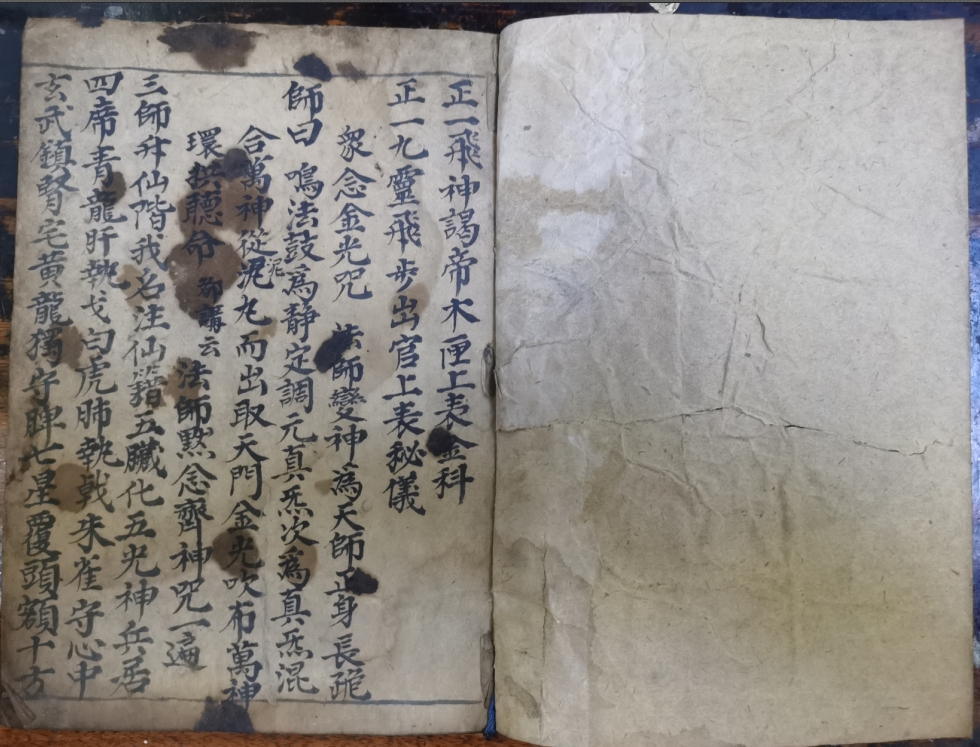 正一飛神謁帝木匣上表金科
正一九靈飛步出官上表秘儀
衆念金光咒 法師變神為天師正身長跪
師曰 鳴法鼓為静定調元真炁次為真炁混
合萬神從泥丸而出取天門金光吹布萬神
泥
環拱聽命 云 法師黙念齊神咒一遍
三師升仙階我名注仙籍五臟化五光神兵居
四席青龍肝執戈白虎肺執戟朱雀守心中
玄武鎮腎宅黃龍獨守脾七星覆頭額十方